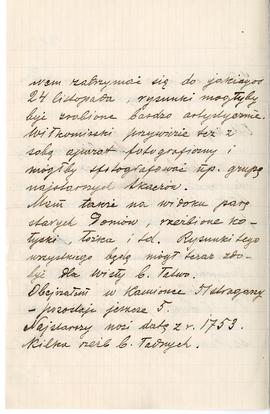 mam zatrzymać się do jakiegoś
24 listopada, rysunki mogłyby
być zrobione bardzo artystycznie.
Witkomirski przywiezie też z
sobą aparat fotograficzny i
mógłby sfotografować np. grupę
najstarszych tkaczów.
Mam także na widoku parę
starych domów, rzeźbione ko-
łyski, łóżka itd. Rysunki tego
wszystkiego będę mógł teraz zdo-
być dla Wisły b. łatwo.
Obejrzałem w Kamionce 51 stragarzy
- pozostaje jeszcze 5.
Najstarszy nosi datę z r. 1753.
Kilka rzeźb b. ładnych.